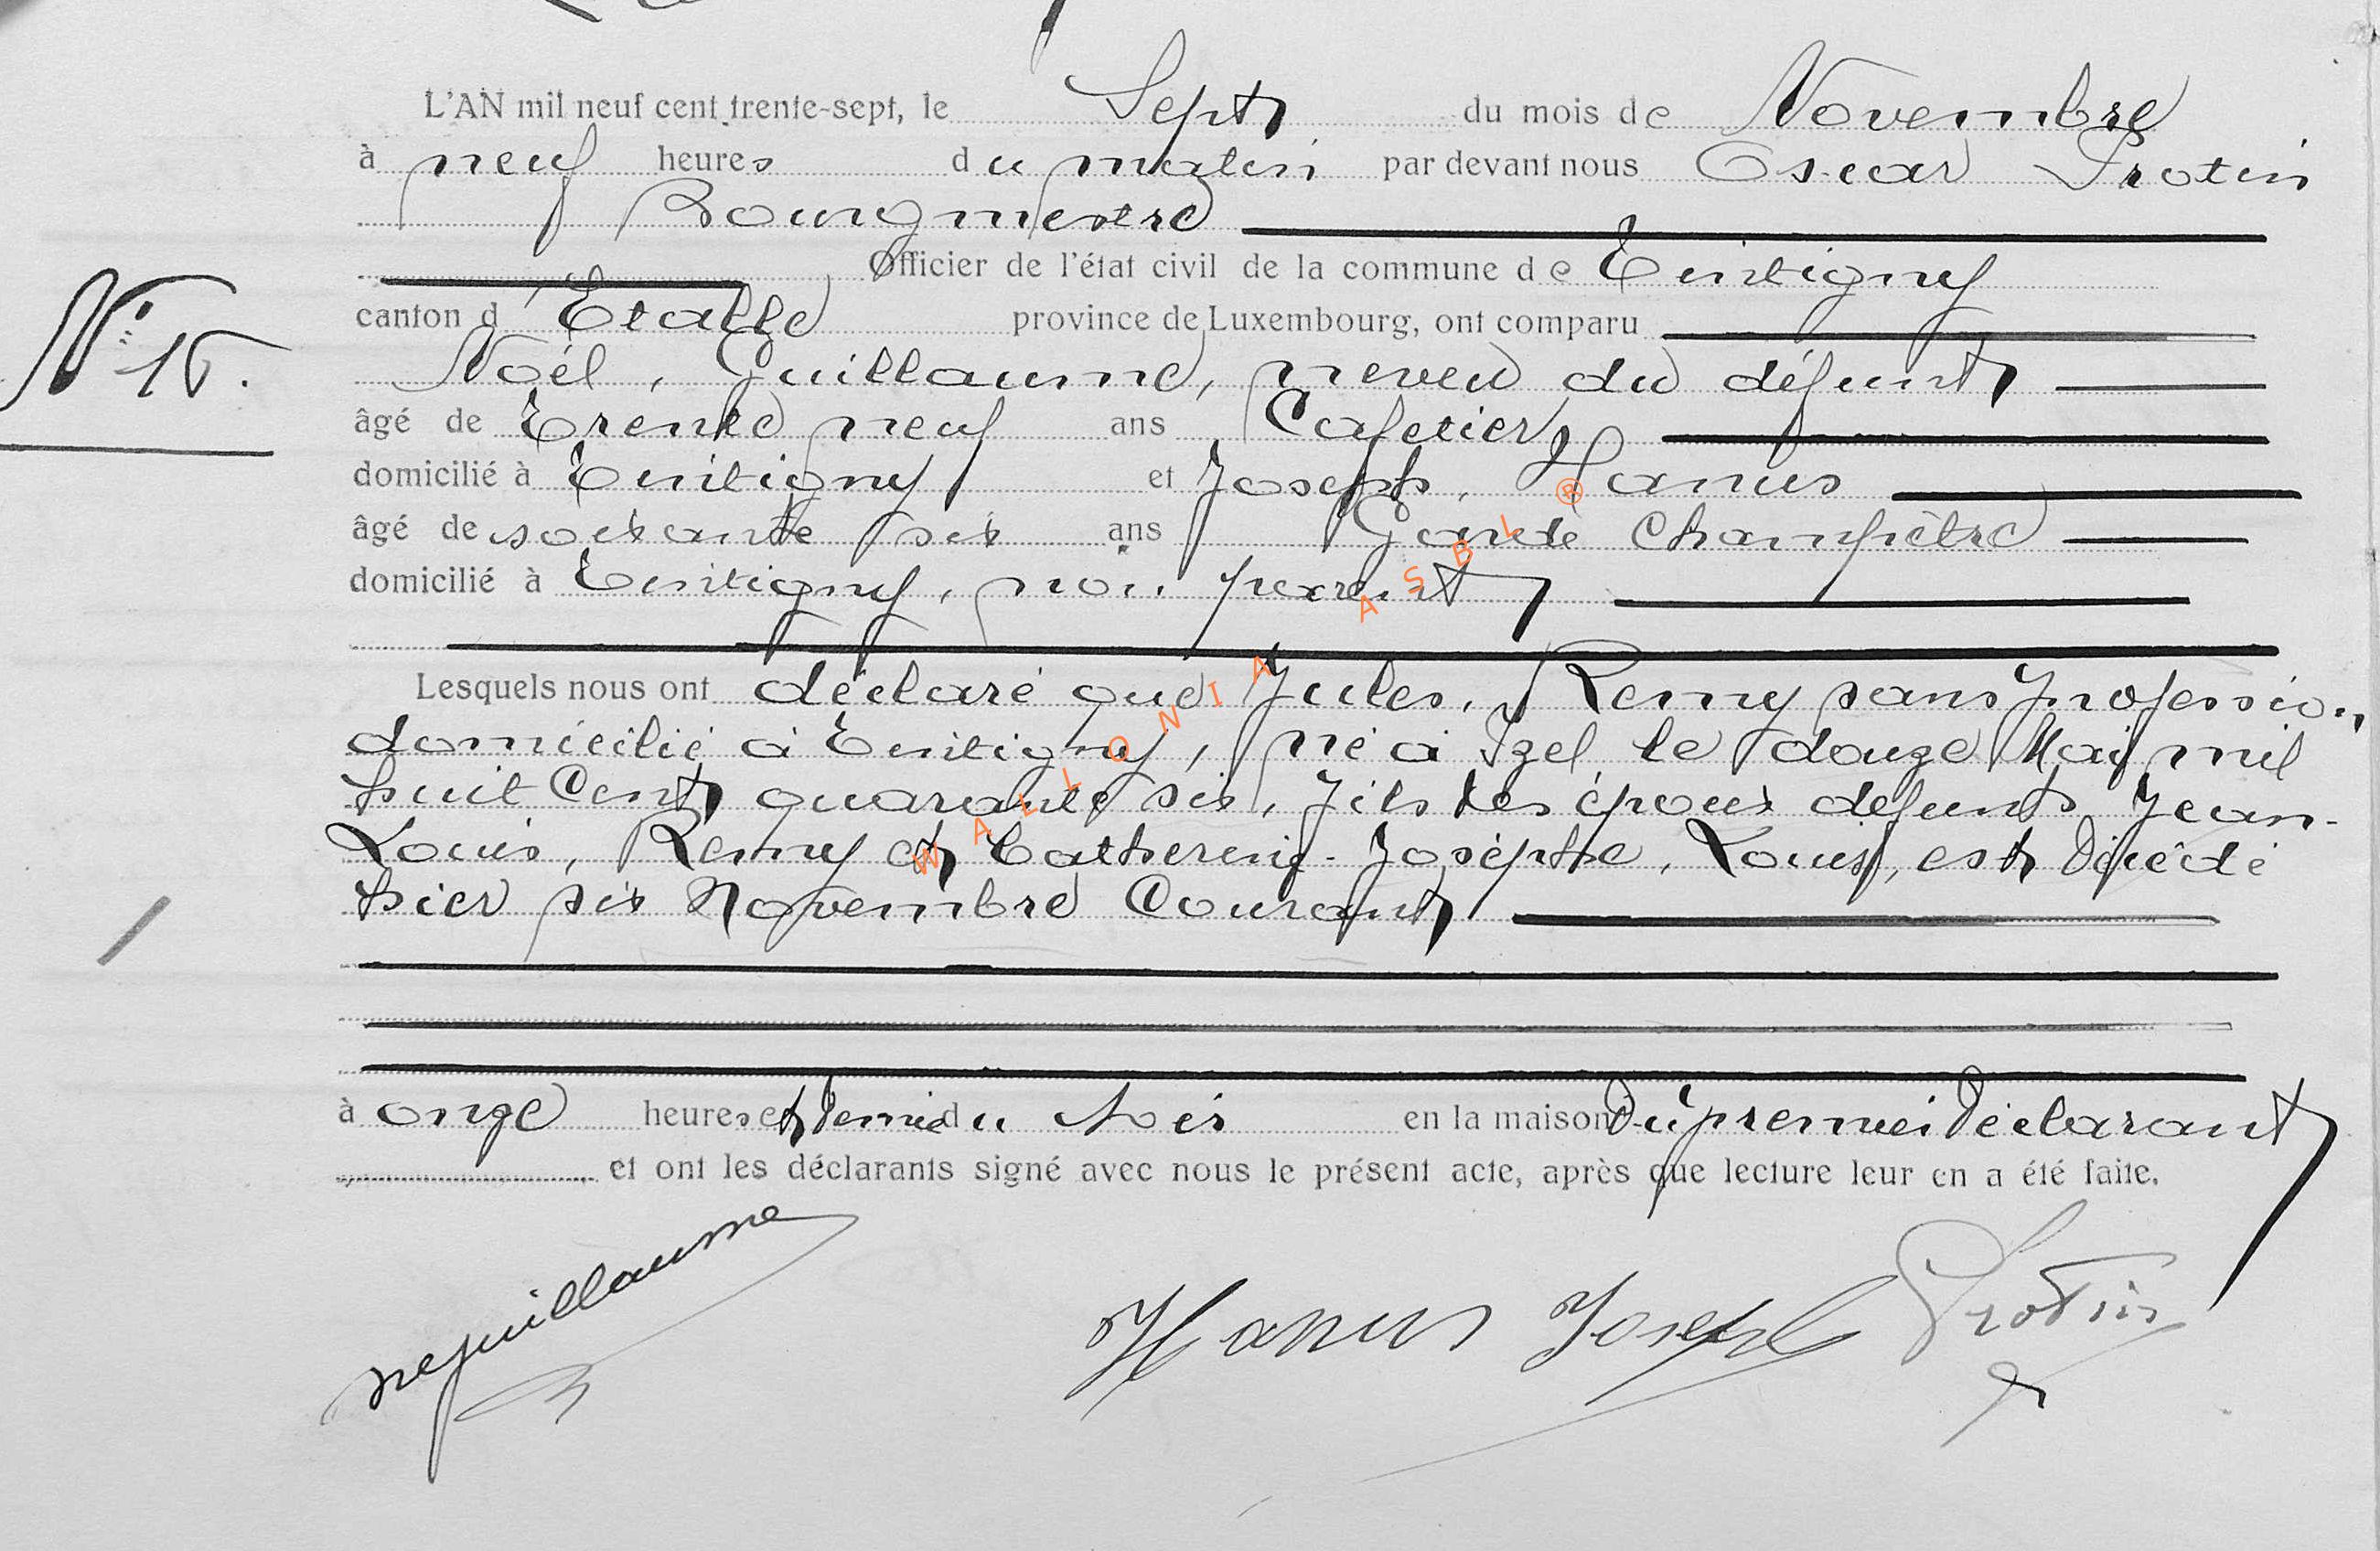 L'AN mil neuf cent trente-sept, le Sept du mois de Novembre
à neuf heures du matin par devant nous Oscar Protin
Bourgmestre
Officier de l'état civil de la commune de Tintigny
canton d'Etalle province de Luxembourg, ont comparu
Noël, Guillaume, neveu du défunt
âgé de Trente neuf ans Cafetier
domicilié à Tintigny et Joseph, Hanus
âgé de soixante six ans Garde Champêtre
domicilié à Tintigny, non parent
Lesquels nous ont déclaré que Jules, Remy sans profession
domicilié à Tintigny, né à Izel le douze Mai mil
huit Cent quarante six, fils des époux défunts Jean-
Louis, Remy et Catherine-Josèphe, Louis, est Décédé
hier six Novembre Courant
à onze heures et demie du soir en la maison du premier Déclarant
et ont les déclarants signé avec nous le présent acte, après que lecture leur en a été faite.
Hanus Joseph Protin
WALLONIA ASBL ®